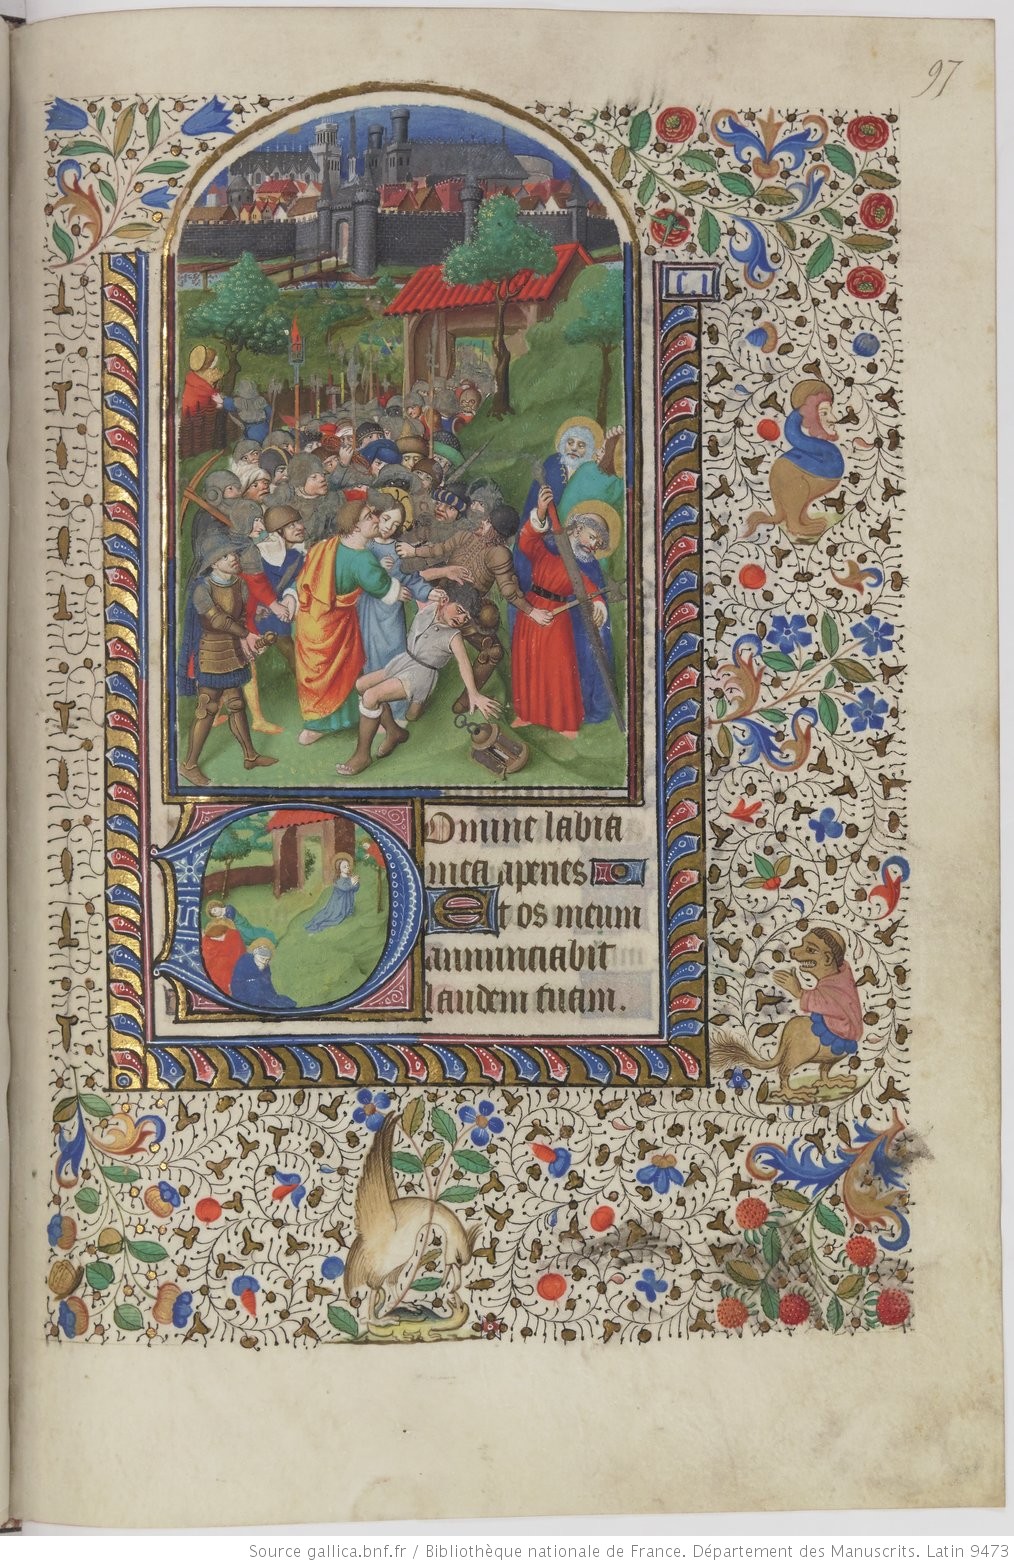 97
Domine labia
mea aperies
Et os meum
annunciabit
laudem tuam.
Source gallica.bnf.fr / Bibliothèque nationale de France. Département des Manuscrits. Latin 9473